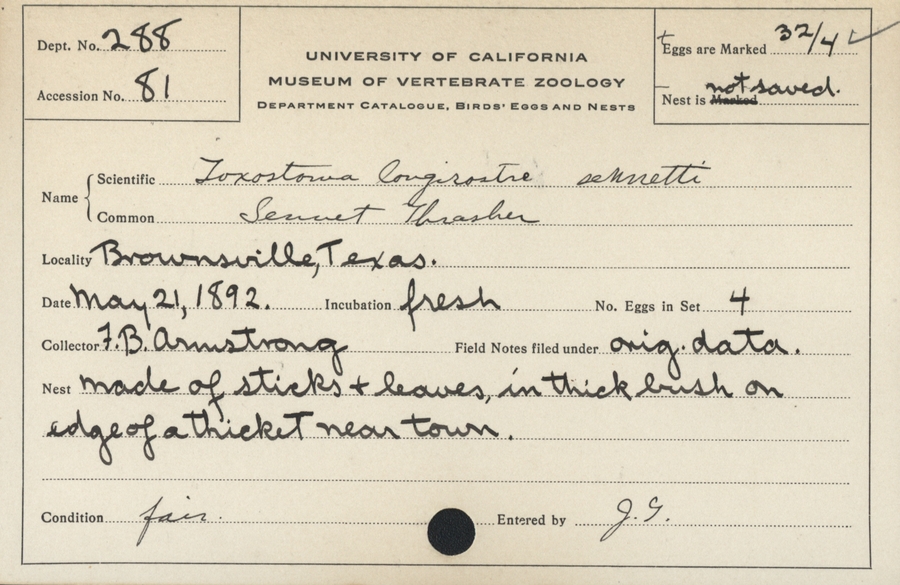 Dept. No. 288
Accession No. 81
UNIVERSITY OF CALIFORNIA
MUSEUM OF VERTEBRATE ZOOLOGY
DEPARTMENT CATALOGUE, BIRDS' EGGS AND NESTS
Eggs are Marked 32/4 ✓
Nest is Marked not saved.
Name { Scientific Toxostoma longirostre sennetti
Common Sennet Thrasher
Locality Brownsville, Texas.
Date May 21, 1892. Incubation fresh No. Eggs in Set 4
Collector F.B. Armstrong Field Notes filed under orig. data.
Nest made of sticks + leaves, in thick bush on
edge of a thicket near town.
Condition fair. Entered by J.G.